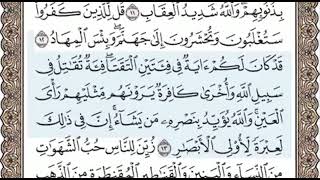 بِذُنُوبِهِمْ وَٱللَّهُ شَدِيدُ ٱلْعِقَابِ ١١ قُل لِّلَّذِينَ كَفَرُوا۟
سَتُغْلَبُونَ وَتُحْشَرُونَ إِلَىٰ جَهَنَّمَ وَبِئْسَ ٱلْمِهَادُ ١٢
قَدْ كَانَ لَكُمْ ءَايَةٌ فِى فِئَتَيْنِ ٱلْتَقَتَا فِئَةٌ تُقَٰتِلُ فِى
سَبِيلِ ٱللَّهِ وَأُخْرَىٰ كَافِرَةٌ يَرَوْنَهُم مِّثْلَيْهِمْ رَأْىَ
ٱلْعَيْنِ وَٱللَّهُ يُؤَيِّدُ بِنَصْرِهِۦ مَن يَشَآءُ إِنَّ فِى ذَٰلِكَ
لَعِبْرَةً لِّأُو۟لِى ٱلْأَبْصَٰرِ ١٣ زُيِّنَ لِلنَّاسِ حُبُّ ٱلشَّهَوَٰتِ
مِنَ ٱلنِّسَآءِ وَٱلْبَنِينَ وَٱلْقَنَٰطِيرِ ٱلْمُقَنطَرَةِ مِنَ ٱلذَّهَبِ